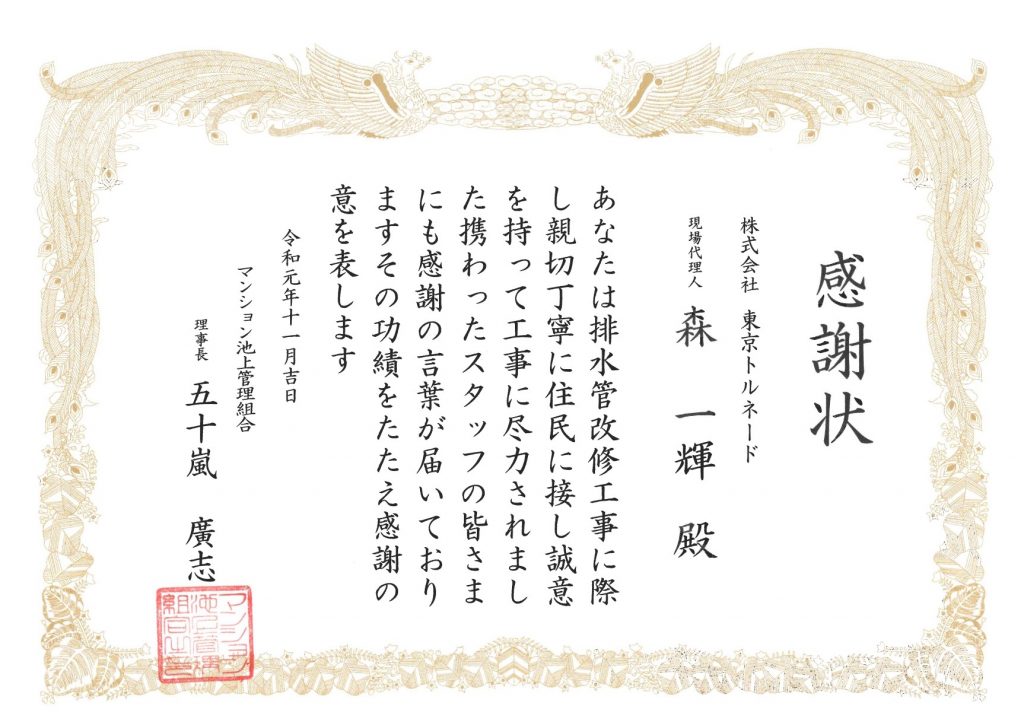 感謝状
株式会社 東京トルネード
現場代理人 森 一輝 殿
あなたは排水管改修工事に際
し親切丁寧に住民に接し誠意
を持って工事に尽力されまし
た携わったスタッフの皆さま
にも感謝の言葉が届いており
ますその功績をたたえ感謝の
意を表します
令和元年十一月吉日
マンション池上管理組合
理事長 五十嵐 廣志